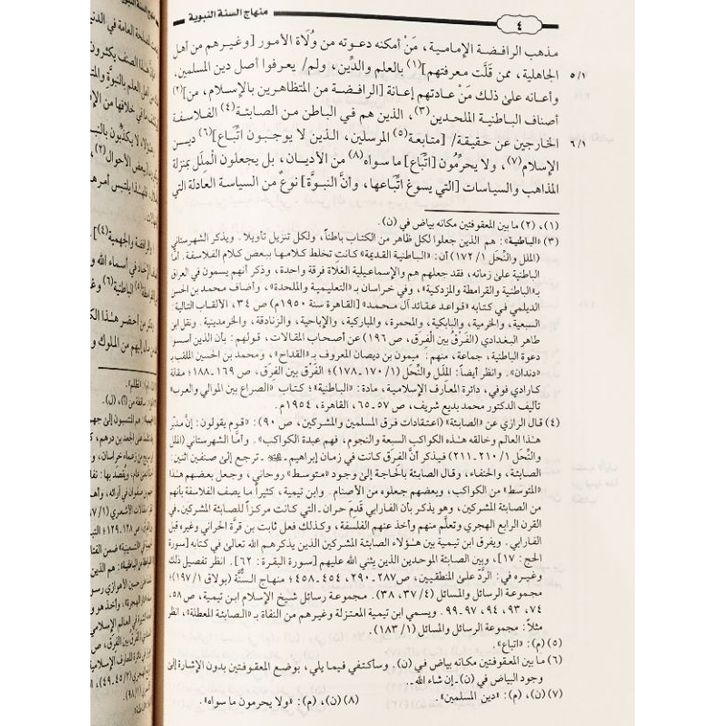 منهاج السنة النبوية
٤
مذهب الرافضة الإمامية، مَنْ أمكنه دعوته من وُلاة الأمور [وغيرهم من أهل
الجاهلية، ممن قَلَّت معرفتهم](١) بالعلم والدِّين، ولم/ يعرفوا أصل دين المسلمين. ٥/١
وأعانه على ذلك مَنْ عادتهم إعانة [الرافضة من المتظاهرين بالإسلام، من](٢)
أصناف الباطنية الملحدين(٣)، الذين هم في الباطن من الصابئة(٤) الفلاسفة
الخارجين عن حقيقة/ [متابعة(٥) المرسلين، الذين لا يوجبون اتِّباع](٦) ديـن ٦/١
الإسلام(٧)، ولا يحرِّمُون [اتِّباع] ما سواه(٨) من الأديان، بل يجعلون المِلَل بمنزلة
المذاهب والسياسات [التي يسوغ اتِّباعها، وأنَّ النبوَّة] نوعٌ من السياسة العادلة التي
(١)، (٢) ما بين المعقوفتين مكانه بياض في (ن).
(٣) «الباطنية»: هم الذين جعلوا لكل ظاهر من الكتاب باطناً، ولكل تنزيل تأويلا. ويذكر الشهرستاني
(الملل والنِّحل ١/١٧٢) أن: «الباطنية القديمة» كانت تخلط كلامها ببعض كلام الفلاسفة. أما
الباطنية على زمانه، فقد جعلهم هم والإسماعيلية الغلاة فرقة واحدة، وذكر أنهم يسمون في العراق
بـ«الباطنية والقرامطة والمزدكية»، وفي خراسان بـ«التعليمية والملحدة»، وأضاف محمد بن الحسن
الديلمي في كتابه «قواعد عقائد آل محمد» [القاهرة سنة ١٩٥٠م] ص ٣٤، الألقاب التالية:
السبعية، والخرمية، والبابكية، والمحمرة، والمباركية، والإباحية، والزنادقة، والخرمدينية. ونقل ابن
طاهر البغدادي (الفَرْق بين الفِرَق، ص ١٩٦) عن أصحاب المقالات، قولهم: بأن الذين أسسوا
دعوة الباطنية، جماعة، منهم: ميمون بن ديصان المعروف بـ«القداح»، ومحمد بن الحسين الملقب بـ
«دندان». وانظر أيضاً: المِلَل والنِّحَل (١/١٧٠ـ١٧٨)؛ الفَرْق بين الفِرَق، ص ١٦٩ـ١٨٨؛ مقالة
كارادي فوفي، دائرة المعارف الإسلامية، مادة: «الباطنية»؛ كتاب «الصراع بين الموالي والعرب»
تأليف الدكتور محمد بديع شريف، ص ٥٧ـ٦٥، القاهرة، ١٩٥٤م.
(٤) قال الرازي عن «الصابئة» (اعتقادات فرق المسلمين والمشركين، ص ٩٠): «قوم يقولون: إنَّ مدبِّر
هذا العالم وخالقه هذه الكواكب السبعة والنجوم، فهم عبدة الكواكب». وأما الشهرستاني (الملل
والنِّحل ١/٢١٠ـ٢١١) فيذكر أنَّ الفِرَق كانت في زمان إبراهيم ـ ـ ترجع إلى صنفين اثنين:
الصابئة، والحنفاء، وقال الصابئة بالحاجة إلى وجود «متوسط» روحاني، وجعل بعضهم هذا
«المتوسط» من الكواكب، وبعضهم جعلوه من الأصنام. وابن تيمية، كثيراً ما يصف الفلاسفة بأنهم
من الصابئة المشركين، وهو يذكر بأن الفارابي قَدِمَ حران ـ التي كانت مركزاً للصابئة المشركين ـ في
القرن الرابع الهجري وتعلَّم منهم وأخذ عنهم الفلسفة، وكذلك فعل ثابت بن قرَّة الحراني وغيره قبل
الفارابي. ويفرق ابن تيمية بين هؤلاء الصابئة المشركين الذين يذكرهم الله تعالى في كتابه [سورة
الحج: ١٧]، وبين الصابئة الموحدين الذين يثني الله عليهم [سورة البقرة: ٦٢]. انظر تفصيل ذلك
وغيره في: الردّ على المنطقيين، ص٢٨٧ـ٢٩٠، ٤٥٤ـ٤٥٨؛ منهاج السنَّة (بولاق ١/١٩٧)؛
مجموعة الرسائل والمسائل (٤/٣٧، ٣٨). مجموعة رسائل شيخ الإسلام ابن تيمية، ص ٥٨،
٧٤، ٩٣، ٩٤، ٩٧ـ٩٩. ويسمي ابن تيمية المعتزلة وغيرهم من النفاة بـ«الصابئة المعطلة»، انظر
مثلاً: مجموعة الرسائل والمسائل (١/١٨٣).
(٥) (م): «اتباع».
(٦) ما بين المعقوفتين مكانه بياض في (ن). وسأكتفي فيما يلي، بوضع المعقوفتين بدون الإشارة إلى
وجود البياض في (ن) ـ إن شاء الله ـ.
(٧) (ن)، (م): «دين المسلمين».
(٨) (ن)، (م): «ولا يحرمون ما سواه».